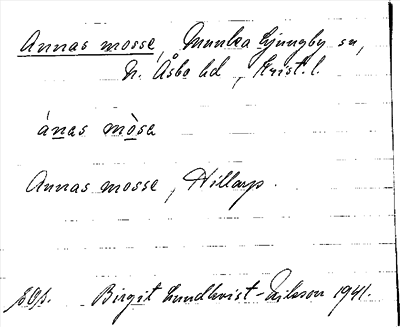 Annas mosse, Munka Ljungby sn,
N. Åsbo hd, Krist. l.
ánas mòsa
Annas mosse, Hillarp.
Birgit Lundkvist-Nilsson 1941.